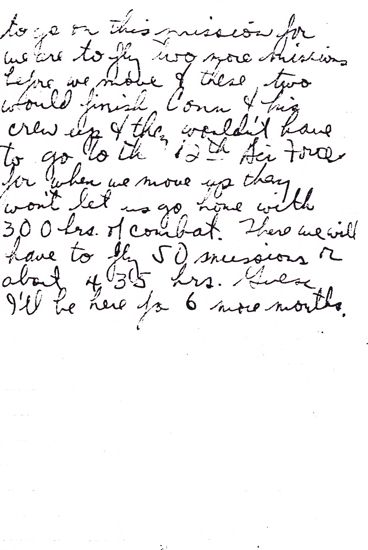 to go on this mission for
we are to fly two more missions
before we move & these two
would finish Conn & his
crew up & they wouldn't have
to go to th 12th Air Force
for when we move up they
won't let us go home with
300 hrs. of combat. There we will
have to fly 50 missions or
about 435 hrs. Guess
I'll be here for 6 more months.